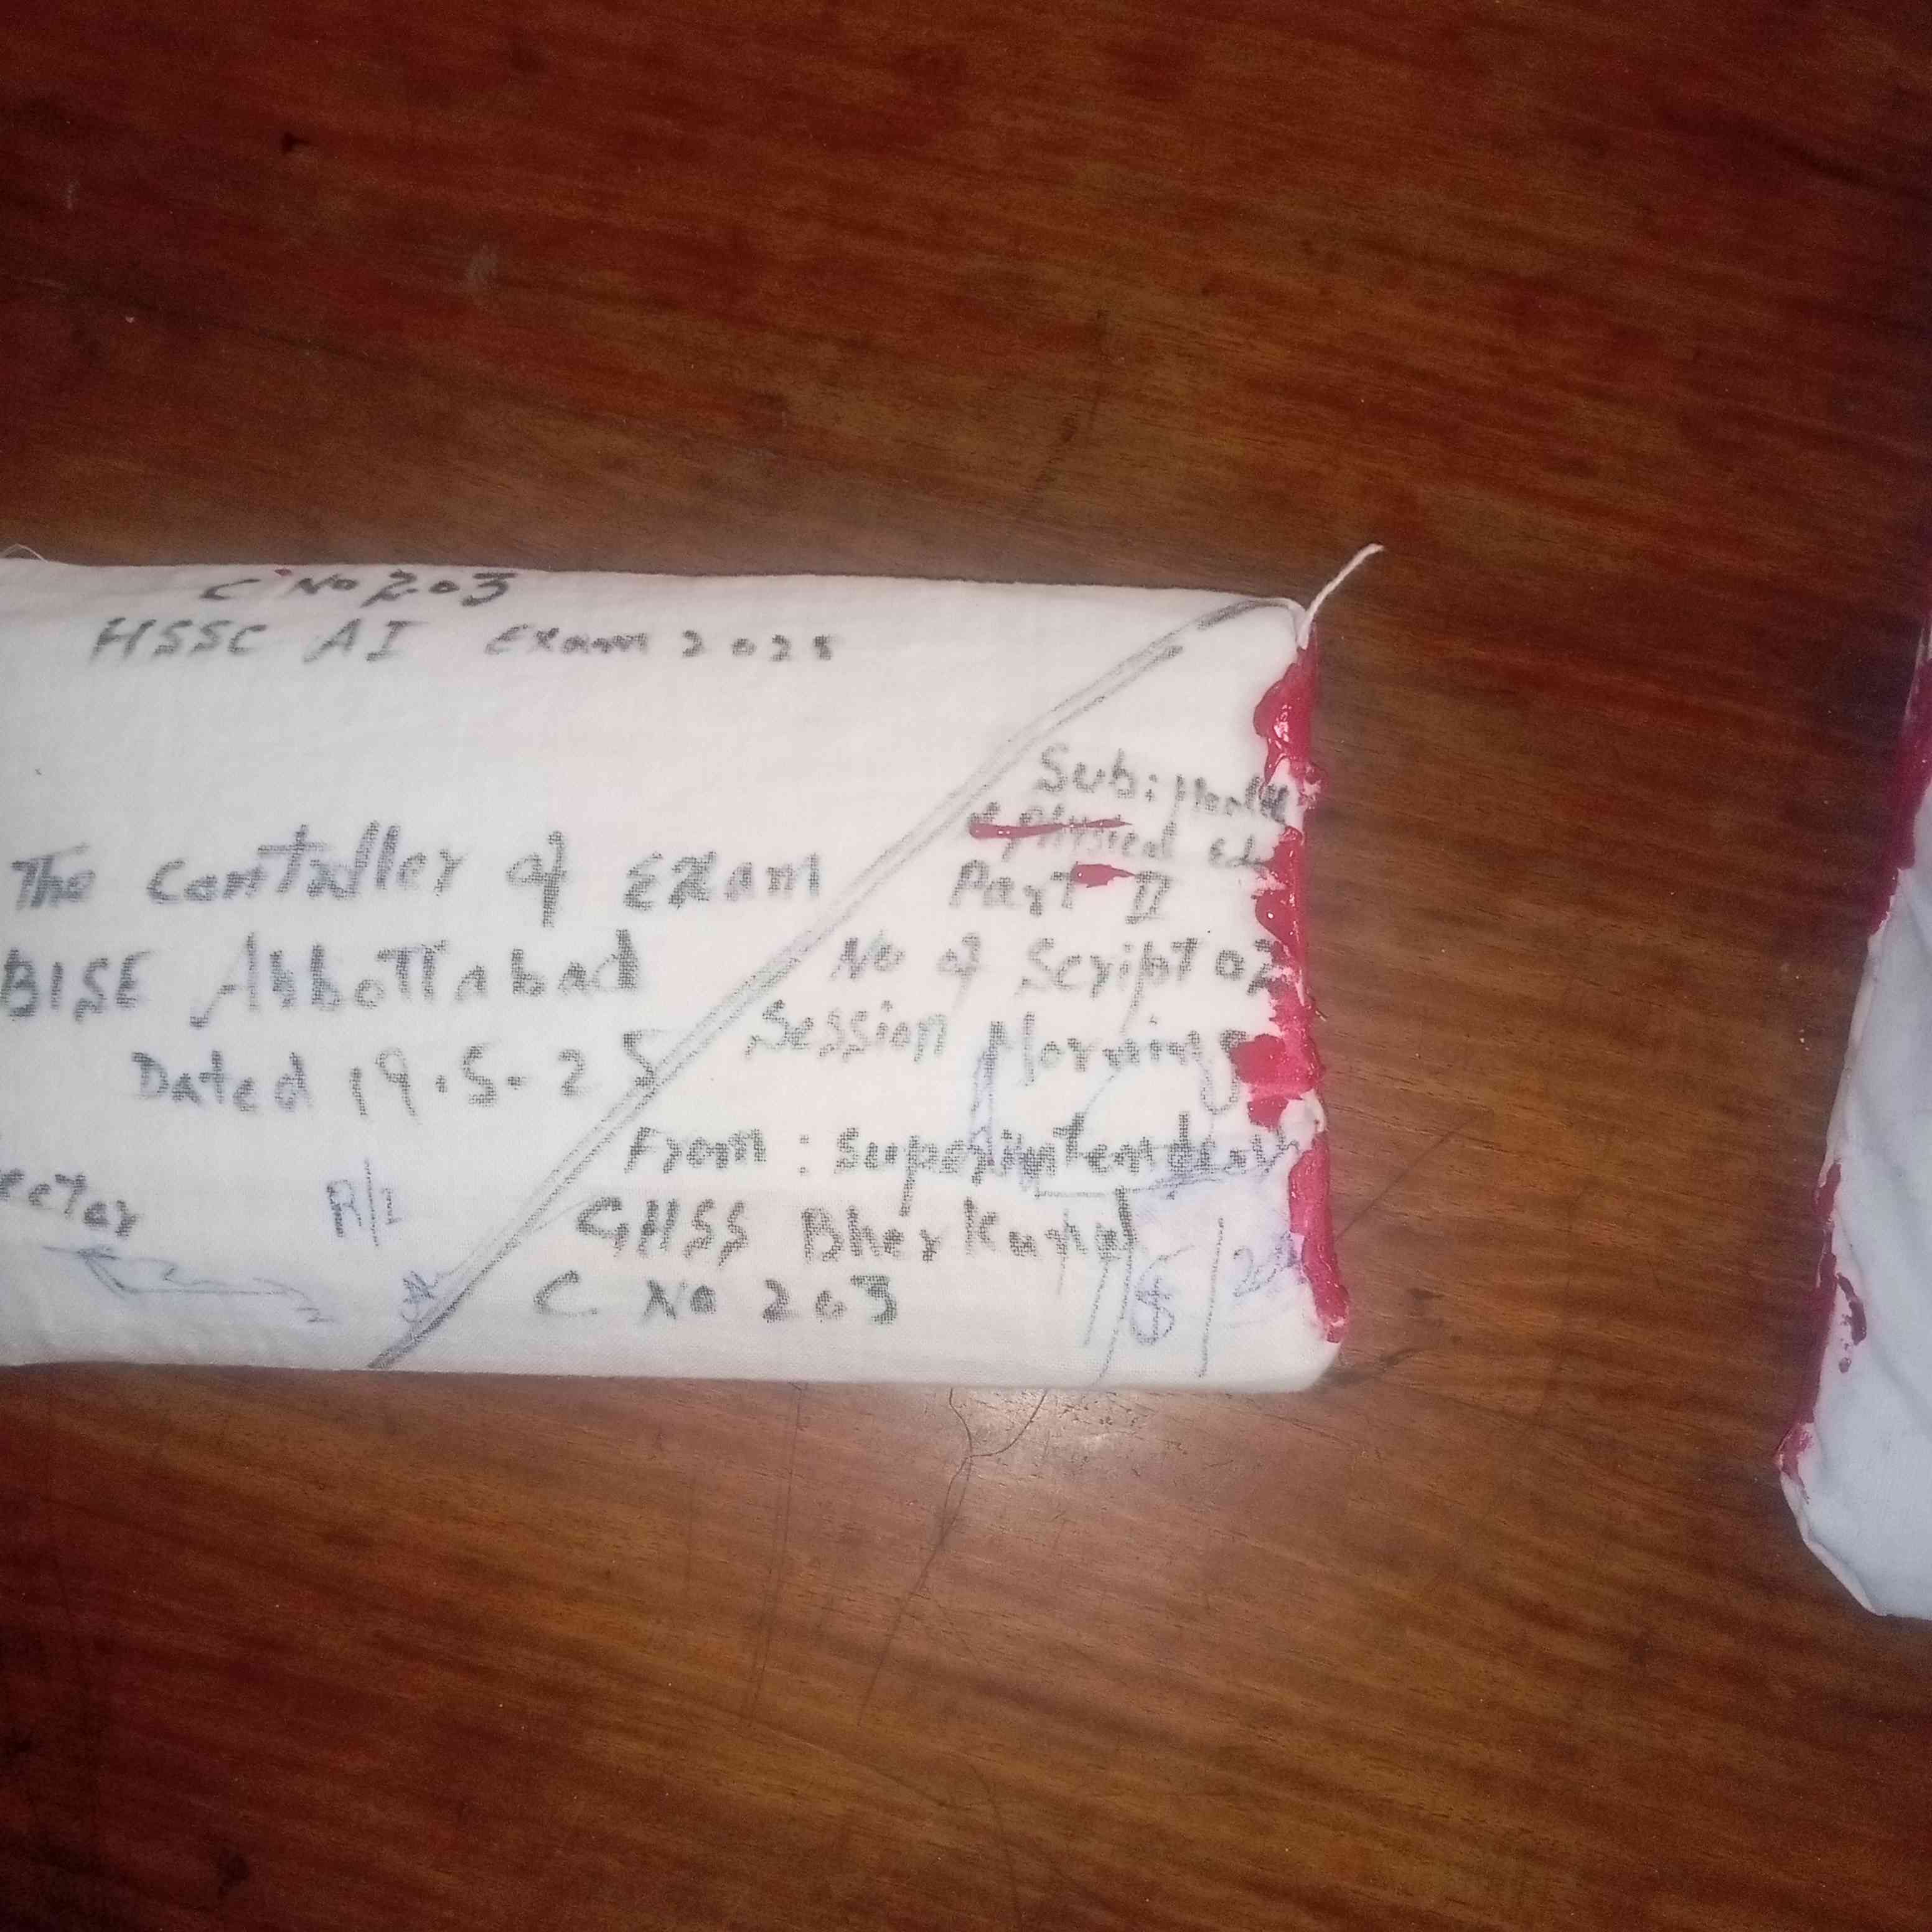 C No 203
HSSC AI Exam 2025
The Controller of Exam
BISE Abbottabad
Dated 19.5.25
ector
R/I
Sub: Health
& Physical Ed
Part II
No of Script 02
Session Morning
From: Superintendent
GHSS Bherkund
C No 203